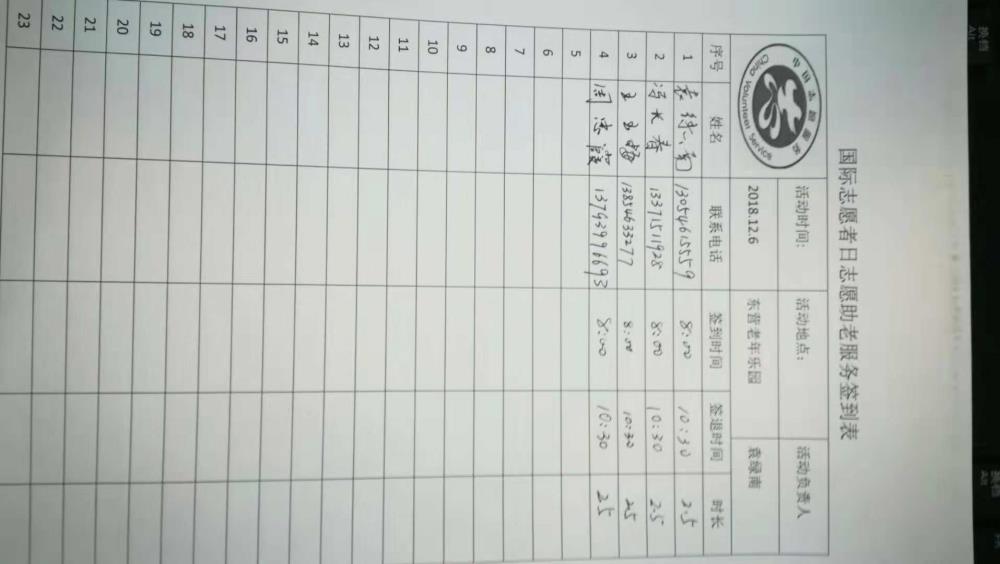 国际志愿者日志愿助老服务签到表
中国志愿服务
China Volunteer Service
活动时间: 活动地点: 活动负责人
2018.12.6 东营老年乐园 袁绿南
序号 姓名 联系电话 签到时间 签退时间 时长
1 袁绿南 13054615559 8:00 10:30 2.5
2 冯长春 13371511928 8:00 10:30 2.5
3 13854633277 8:00 10:30 2.5
4 周忠 8:00 10:30 2.5
5
6
7
8
9
10
11
12
13
14
15
16
17
18
19
20
21
22
23